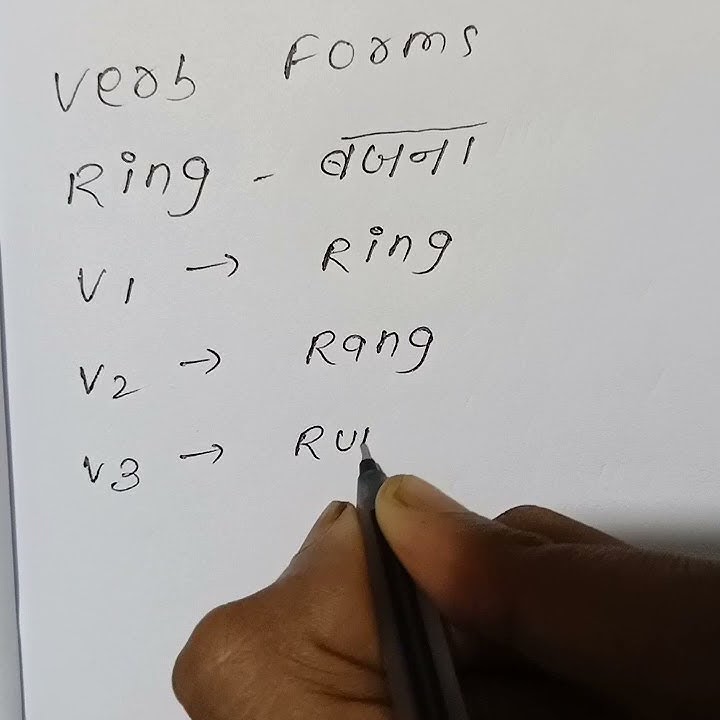 Verb Forms
Ring - बजना
V1 → Ring
V2 → Rang
V3 → Ru